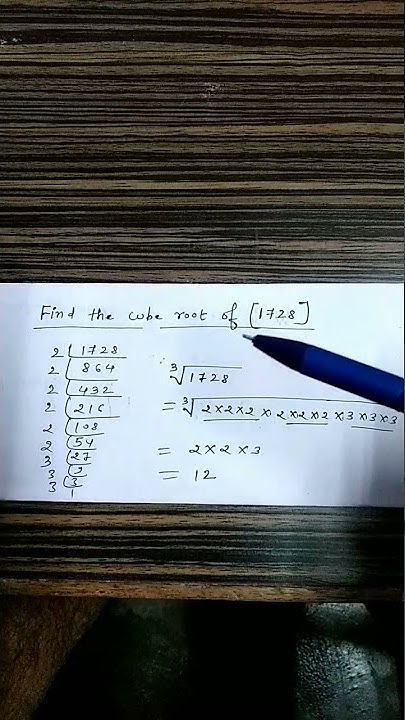 Find the cube root of [1728]
2 | 1728
2 | 864
2 | 432
2 | 216
2 | 108
2 | 54
3 | 27
3 | 9
3 | 3
1
∛1728
= ∛2×2×2×2×2×2×3×3×3
= 2×2×3
= 12